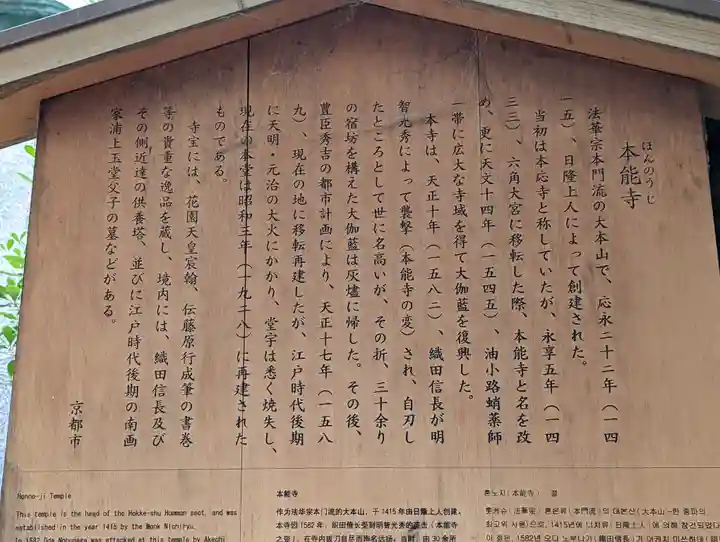 ほんのうじ
本能寺
法華宗本門流の大本山で、応永二十二年（一四
一五）、日隆上人によって創建された。
当初は本応寺と称していたが、永享五年（一四
三三）、六角大宮に移転した際、本能寺と名を改
め、更に天文十四年（一五四五）、油小路蛸薬師
一帯に広大な寺域を得て大伽藍を復興した。
本寺は、天正十年（一五八二）、織田信長が明
智光秀によって襲撃（本能寺の変）され、自刃し
たところとして世に名高いが、その折、三十余り
の宿坊を構えた大伽藍は灰燼に帰した。その後、
豊臣秀吉の都市計画により、天正十七年（一五八
九）、現在の地に移転再建したが、江戸時代後期
に天明・元治の大火にかかり、堂宇は悉く焼失し、
現在の本堂は昭和三年（一九二八）に再建された
ものである。
寺宝には、花園天皇宸翰、伝藤原行成筆の書巻
等の貴重な逸品を蔵し、境内には、織田信長及び
その側近達の供養塔、並びに江戸時代後期の南画
家浦上玉堂父子の墓などがある。
京都市
Honno-ji Temple
This temple is the head of the Hokke-shu Honmon sect, and was
established in the year 1415 by the Monk Nichiryu.
In 1582 Oda Nobunaga was attacked at this temple by Akechi
本能寺
作为法华宗本门流的大本山，于 1415 年由日隆上人创建。
本寺因 1582 年，织田信长受到明智光秀的袭击（本能寺
之变），在寺内拔刀自尽而闻名远扬。当时，由 30 余所
혼노지（本能寺） 절
홋케슈（法華宗） 혼몬류（本門流）의 대본산（大本山－한 종파의
최고위 사원）으로, 1415년에 니치류（日隆上人）에 의해 창건되었다
이 절은, 1582년 오다 노부나가（織田信長）가 아케치 미쓰히데（